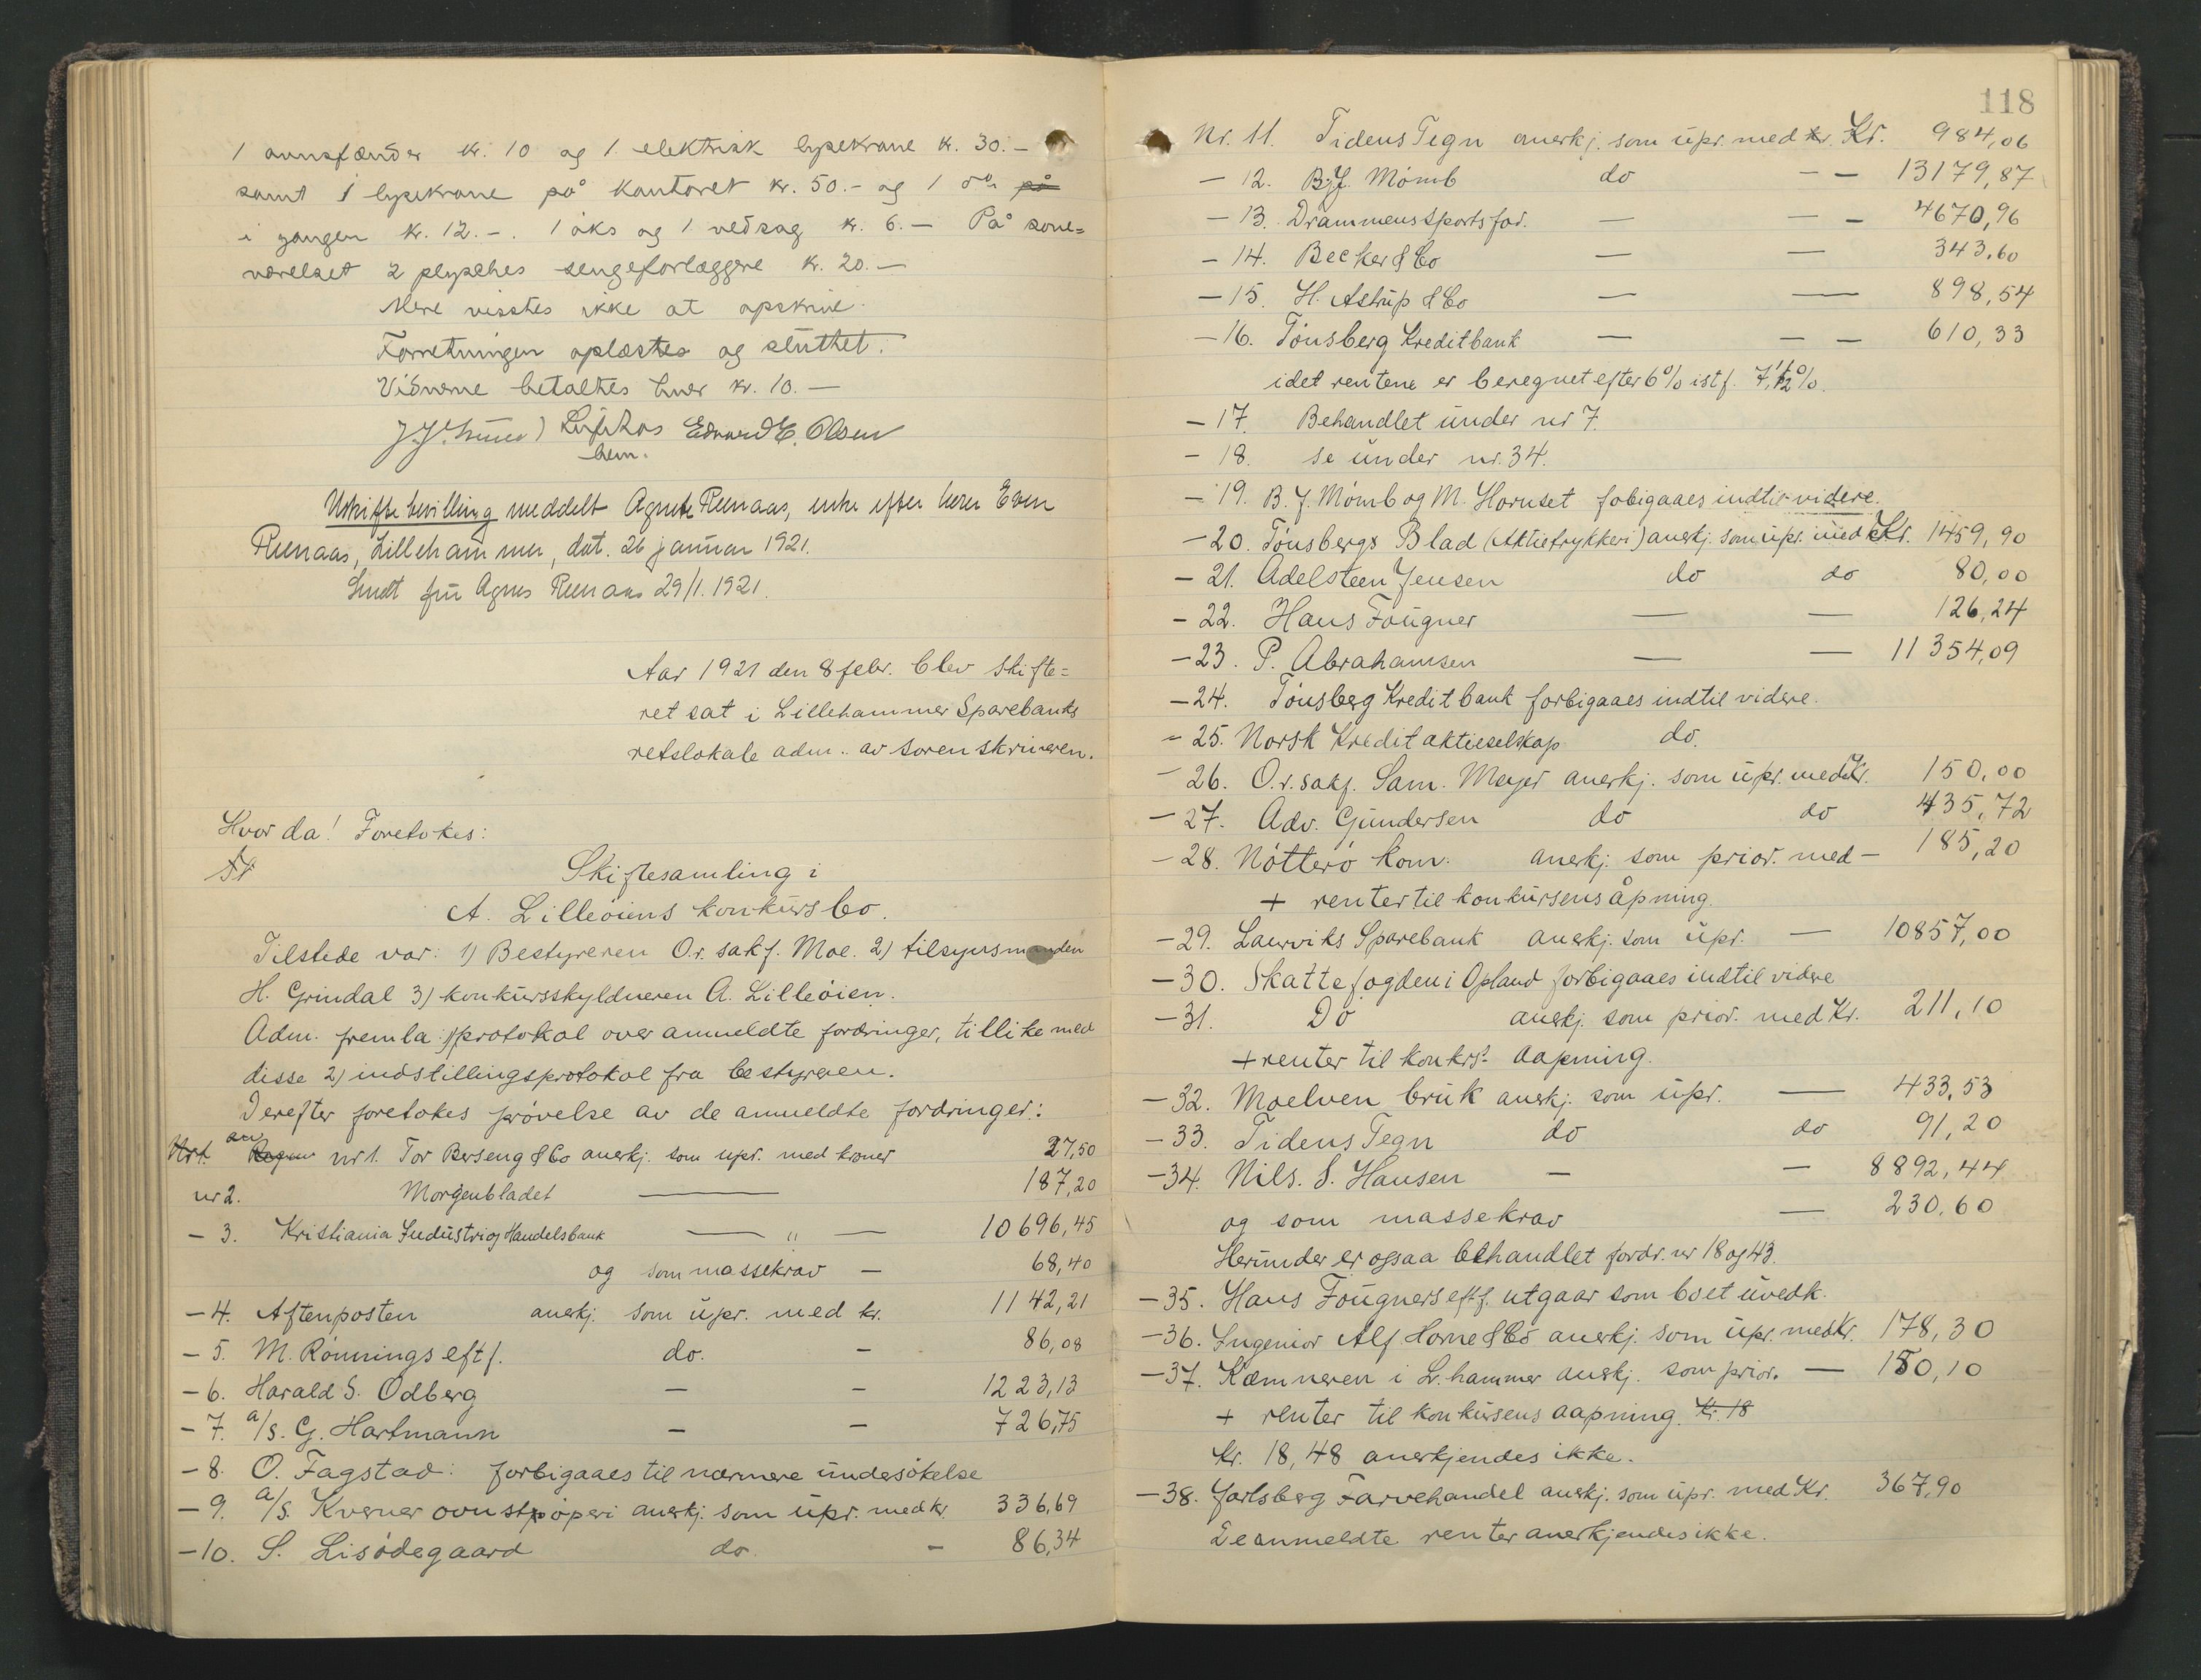 1 ovnsfænder kr. 10 og 1 elektrisk lysekrone kr. 30.–
samt 1 lysekrone på kontoret kr. 50.– og 1 do på
i gangen kr. 12.–. 1 øks og 1 vedsag kr. 6.– På sove=
værelset 2 plysches sengeforlæggere kr. 20.–
Mere visstes ikke at opskrive.
Forretningen oplæstes og sluttet.
Vidnerne betaltes hver kr. 10.–
Edvard E. Olsen
Uskiftebevilling meddelt Agnete Reenaas, enke efter herr Even
Reenaas, Lillehammer, dat. 26 januar 1921.
Sendt fru Agnes Reenaas 29/1. 1921.
Aar 1921 den 8 febr. blev skifte=
ret sat i Lillehammer Sparebanks
retslokale adm. av sorenskriveren.
Hvor da! Foretokes:
Skiftesamling i
A. Lilleøiens konkursbo.
Tilstede var: 1) Bestyreren O.r. sakf. Moe. 2) tilsynsmanden
H. Grindal 3) konkursskyldneren A. Lilleøien.
Adm. fremla 1) protokol over anmeldte fordringer, tillike med
disse 2) indstillingsprotokol fra bestyreren.
Derefter foretokes prøvelse av de anmeldte fordringer:
nr 1. Tor Berseng & Co anerkj. som upr. med kroner 27,50
nr 2. Morgenbladet — 187,20
– 3. Kristiania Industri og Handelsbank — " — 10696,45
og som massekrav – 68,40
– 4. Aftenposten anerkj. som upr. med kr. 1142,21
– 5. M. Rønnings eftf. do. – 86,08
– 6. Harald S. Ødberg – – 1223,13
– 7. A/S. G. Hartmann – – 726,75
– 8. O. Fagstad: forbigaaes til nærmere undersøkelse
– 9. A/S. Kværner ovnstøperi anerkj. som upr. med kr. 336,69
– 10. S. Lisødegaard do – 86,34
118
Nr. 11. Tidens Tegn anerkj. som upr. med kr. Kr. 984,06
– 12. B.J. Mømb do – – 13179,87
– 13. Drammens Sportsfor. — – – 4670,96
– 14. Becker & Co — — 343,60
– 15. H. Astrup & Co — — 898,54
– 16. Tønsberg Kreditbank — – – 610,33
idet rentene er beregnet efter 6% istf. 7 1/2%.
– 17. Behandlet under nr 7.
– 18. se under nr. 34.
– 19. B.J. Mømb og M. Hornset fobigaaes indtil videre.
– 20. Tønsbergs Blad (Aktietrykkeri) anerkj. som upr. med Kr. 1459,90
– 21. Adelsteen Jensen do do 80,00
– 22. Hans Fougner — — 126,24
– 23. P. Abrahamsen — — 11354,09
– 24. Tønsberg Kreditbank forbigaaes indtil videre.
– 25. Norsk Kreditaktieselskap do.
– 26. O.r. sakf. Sam. Meyer anerkj. som upr. med Kr. 150,00
– 27. Adv. Gundersen do do 435,72
– 28. Nøtterø kom. anerkj. som prior. med – 185,20
+ renter til konkursens åpning.
– 29. Laurviks Sparebank anerkj. som upr. — 10857,00
– 30. Skattefogden i Opland forbigaaes indtil videre
– 31. Do anerkj. som prior. med Kr. 211,10
+ renter til konkrs. aapning.
– 32. Moelven bruk anerkj. som upr. — 433,53
– 33. Tidens Tegn do do 91,20
– 34. Nils. S. Hansen – – 8892,44
og som massekrav — 230,60
Herunder er ogsaa behandlet fordr. nr 18 og 43.
– 35. Hans Fougners eftf. utgaar som boet uvedk.
– 36. Ingeniør Alf Horne & Co anerkj. som upr. med Kr. 178,30
– 37. Kæmneren i L.hammer anerkj. som prior. — 150,10
+ renter til konkursens aapning. Kr. 18
Kr. 18,48 anerkjendes ikke.
– 38. Jarlsberg Farvehandel anerkj. som upr. med Kr. 367,90
De anmeldte renter anerkjendes ikke.